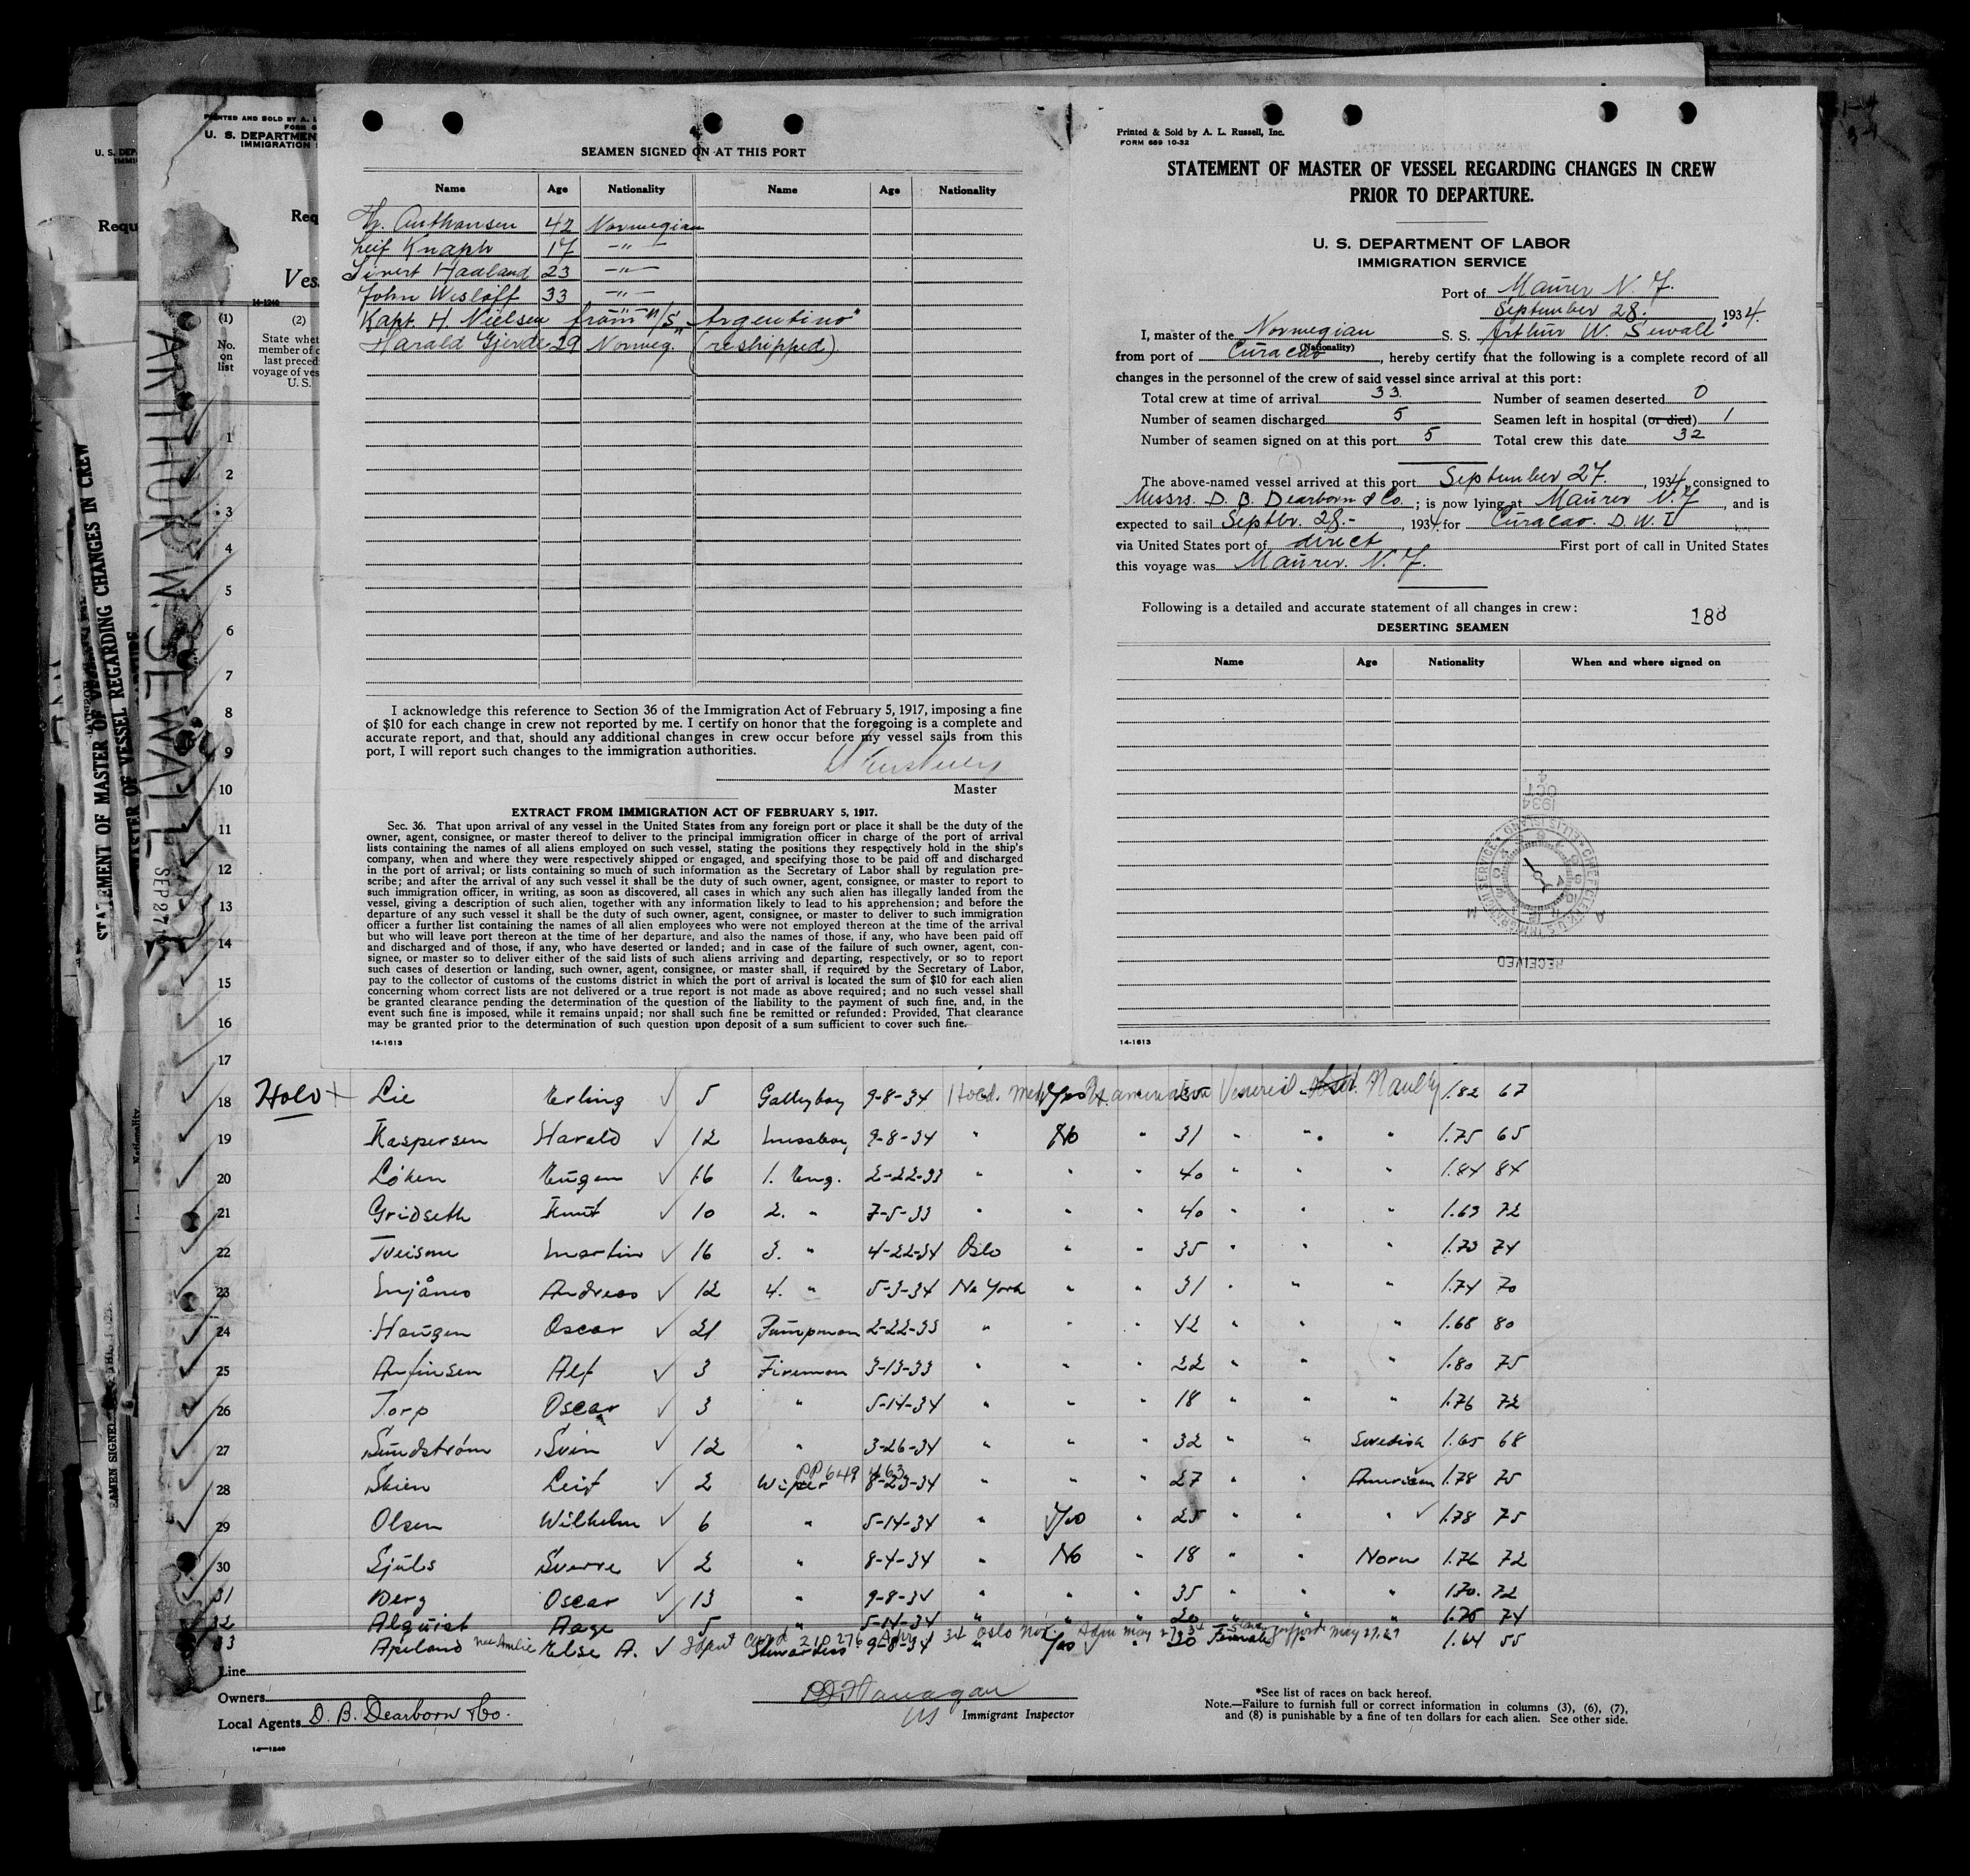 SEAMEN SIGNED ON AT THIS PORT
Name Age Nationality Name Age Nationality
42 Norwegian
Leif Knaph 17 -"-
Sivert Haaland 23 -"-
John Wisløff 33 -"-
Kapt. H. Nielsen from M/S "Argentino"
Harald Gjerde 29 Norweg. (reshipped)
I acknowledge this reference to Section 36 of the Immigration Act of February 5, 1917, imposing a fine
of $10 for each change in crew not reported by me. I certify on honor that the foregoing is a complete and
accurate report, and that, should any additional changes in crew occur before my vessel sails from this
port, I will report such changes to the immigration authorities.
Master
EXTRACT FROM IMMIGRATION ACT OF FEBRUARY 5, 1917.
Sec. 36. That upon arrival of any vessel in the United States from any foreign port or place it shall be the duty of the
owner, agent, consignee, or master thereof to deliver to the principal immigration officer in charge of the port of arrival
lists containing the names of all aliens employed on such vessel, stating the positions they respectively hold in the ship's
company, when and where they were respectively shipped or engaged, and specifying those to be paid off and discharged
in the port of arrival; or lists containing so much of such information as the Secretary of Labor shall by regulation pre-
scribe; and after the arrival of any such vessel it shall be the duty of such owner, agent, consignee, or master to report to
such immigration officer, in writing, as soon as discovered, all cases in which any such alien has illegally landed from the
vessel, giving a description of such alien, together with any information likely to lead to his apprehension; and before the
departure of any such vessel it shall be the duty of such owner, agent, consignee, or master to deliver to such immigration
officer a further list containing the names of all alien employees who were not employed thereon at the time of the arrival
but who will leave port thereon at the time of her departure, and also the names of those, if any, who have been paid off
and discharged and of those, if any, who have deserted or landed; and in case of the failure of such owner, agent, con-
signee, or master so to deliver either of the said lists of such aliens arriving and departing, respectively, or so to report
such cases of desertion or landing, such owner, agent, consignee, or master shall, if required by the Secretary of Labor,
pay to the collector of customs of the customs district in which the port of arrival is located the sum of $10 for each alien
concerning whom correct lists are not delivered or a true report is not made as above required; and no such vessel shall
be granted clearance pending the determination of the question of the liability to the payment of such fine, and, in the
event such fine is imposed, while it remains unpaid; nor shall such fine be remitted or refunded: Provided, That clearance
may be granted prior to the determination of such question upon deposit of a sum sufficient to cover such fine.
14-1613
Printed & Sold by A. L. Russell, Inc.
FORM 689 10-32
STATEMENT OF MASTER OF VESSEL REGARDING CHANGES IN CREW
PRIOR TO DEPARTURE.
U. S. DEPARTMENT OF LABOR
IMMIGRATION SERVICE
Port of Maurer N. J.
September 28. , 1934.
I, master of the Norwegian S. S. "Arthur W. Sewall"
(Nationality)
from port of Curacao , hereby certify that the following is a complete record of all
changes in the personnel of the crew of said vessel since arrival at this port:
Total crew at time of arrival 33. Number of seamen deserted 0
Number of seamen discharged 5 Seamen left in hospital (or died) 1
Number of seamen signed on at this port 5 Total crew this date 32
The above-named vessel arrived at this port September 27. , 1934, consigned to
Messrs. D. B. Dearborn & Co. ; is now lying at Maurer N. J , and is
expected to sail Septbr. 28.- , 1934 for Curacao. D. W. I
via United States port of direct First port of call in United States
this voyage was Maurer. N. J.
Following is a detailed and accurate statement of all changes in crew:
188
DESERTING SEAMEN
Name Age Nationality When and where signed on
1934
OCT
RECEIVED
14-1613
ARTHUR W. SEWALL
SEP 27
STATEMENT OF MASTER OF VESSEL REGARDING CHANGES IN CREW
U. S. DEPARTMEN
IMMIGRATION
Req
Ves
14-1240
(1) (2)
No. on list
State whet
member of c
last preced
voyage of ves
U. S.
1
2
3
4
5
6
7
8
9
10
11
12
13
14
15
16
17
18 Hold + Lie Erling 5 Galleyboy 9-8-34 Yes 1.82 67
19 Kaspersen Harald 12 Messboy 9-8-34 " No " 31 " " " 1.75 65
20 Løken Eugen 16 1. Eng. 2-22-33 " " " 40 " " " 1.84 84
21 Gridseth Knut 10 2. " 7-5-33 " " " 40 " " " 1.69 72
22 Tveisme Martin 16 3. " 4-22-34 Oslo " " 35 " " " 1.73 74
23 Mjånes Andreas 12 4. " 5-3-34 Ne York " " 31 " " " 1.74 70
24 Haugen Oscar 21 Pumpman 2-22-33 " " " 42 " " " 1.68 80
25 Anfinsen Alf 3 Fireman 3-13-33 " " " 22 " " " 1.80 75
26 Torp Oscar 3 " 5-14-34 " " " 18 " " " 1.76 72
27 Sundstrøm Svin 12 " 3-26-34 " " " 32 " " Swedish 1.65 68
PP 649 463
28 Skien Leif 2 Wiper 8-23-34 " " " 27 " " American 1.78 75
29 Olsen Wilhelm 6 " 5-14-34 " Yes " 25 " " " 1.78 75
30 Sjuls Sverre 2 " 8-4-34 " No " 18 " " Norw 1.76 72
31 Berg Oscar 13 " 9-8-34 " " " 35 " " " 1.70. 72
32 Alquist Aage 5 " 5-14-34 " " " 20 " " " 1.75 74
33 Apeland Else A. Stewardess 9-8-34 " Yes " 30 Female " " 1.64 55
Line
Owners
Local Agents D. B. Dearborn & Co.
Immigrant Inspector
*See list of races on back hereof.
Note.—Failure to furnish full or correct information in columns (3), (6), (7),
and (8) is punishable by a fine of ten dollars for each alien. See other side.
14-1240